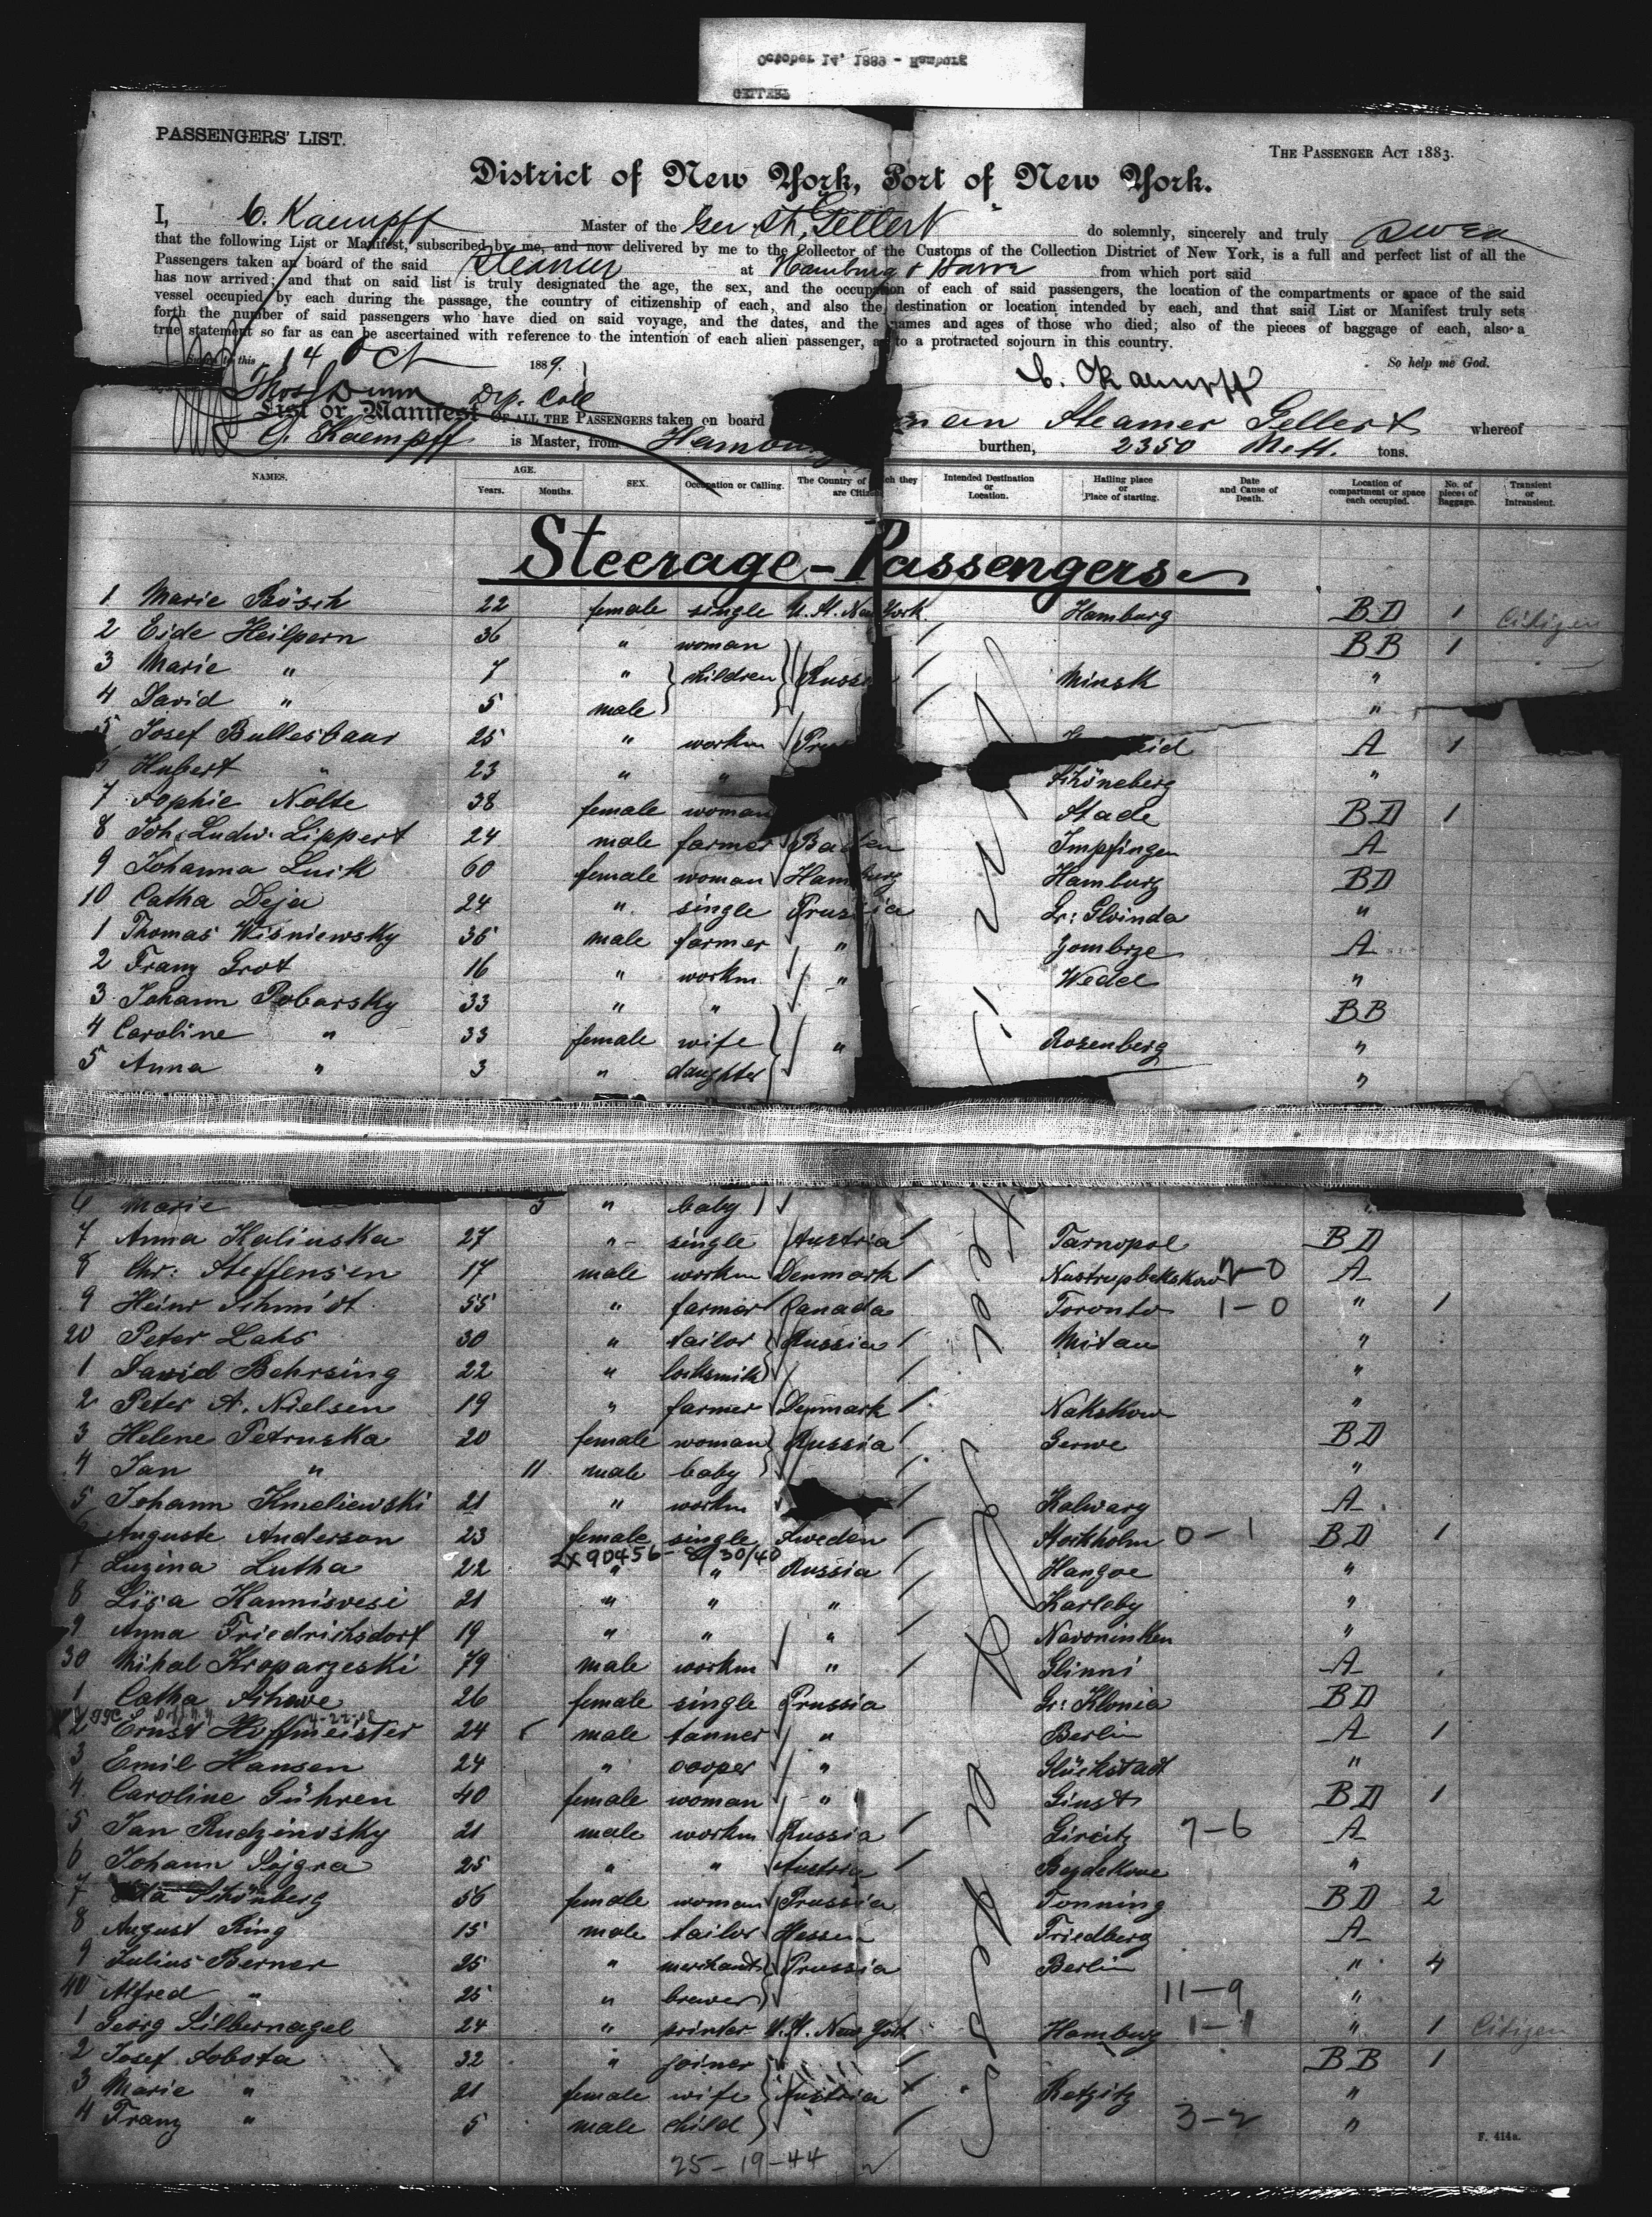 October 14, 1889 - Hamburg
GELLERT
PASSENGERS' LIST.
THE PASSENGER ACT 1883.
District of New York, Port of New York.
I, C. Kaempff Master of the Ger. St. Gellert do solemnly, sincerely and truly swear
that the following List or Manifest, subscribed by me, and now delivered by me to the Collector of the Customs of the Collection District of New York, is a full and perfect list of all the
Passengers taken on board of the said Steamer at Hamburg & Havre from which port said
has now arrived; and that on said list is truly designated the age, the sex, and the occupation of each of said passengers, the location of the compartments or space of the said
vessel occupied by each during the passage, the country of citizenship of each, and also the destination or location intended by each, and that said List or Manifest truly sets
forth the number of said passengers who have died on said voyage, and the dates, and the names and ages of those who died; also of the pieces of baggage of each, also a
true statement so far as can be ascertained with reference to the intention of each alien passenger, as to a protracted sojourn in this country.
Sworn to this 14 Oct 1889. So help me God.
C. Kaempff
Thos Dunn Dep. Coll
List or Manifest OF ALL THE PASSENGERS taken on board Steamer Gellert whereof
C. Kaempff is Master, from Hamburg burthen, 2350 Nett. tons.
NAMES. AGE. Years. Months. SEX. Occupation or Calling. The Country of which they are Citizens. Intended Destination or Location. Hailing place or Place of starting. Date and Cause of Death. Location of compartment or space each occupied. No. of pieces of Baggage. Transient or Intransient.
Steerage-Passengers
1 Marie Rösch 22 female single U. St. New York Hamburg BD 1 Citizen
2 Eide Heilpern 36 " woman BB 1
3 Marie " 7 " children Russia Minsk "
4 David " 5 male "
5 Josef Bullesbaar 25 " workm A 1
Hubert " 23 " " Schöneberg "
7 Sophie Nolte 38 female woman Stade BD 1
8 Joh: Ludw: Lippert 24 male farmer Baden Impfingen A
9 Johanna Luik 60 female woman Hamburg Hamburg BD
10 Catha Deja 24 " single Prussia Gr: Glvinda "
1 Thomas Wisniewsky 36 male farmer " Zombrze A
2 Franz Grot 16 " workm " Wedel "
3 Johann Pobarsky 33 " " BB
4 Caroline " 33 female wife " Rosenberg "
5 Anna " 3 " daughter "
6 Marie 5 " baby
7 Anna Kalinska 27 " single Austria Tarnopol BD
8 Chr: Steffensen 17 male workm Denmark 2-0 A
9 Heinr Schmidt 55 " farmer Canada Toronto 1-0 " 1
20 Peter Lahs 30 " tailor Russia Mitau "
1 David Behrsing 22 " locksmith "
2 Peter A. Nielsen 19 " farmer Denmark Nakskow "
3 Helene Petruska 20 female woman Russia Gerwe BD
4 Jan " 11 male baby "
5 Johann Kmeliewski 21 " workm Kalwary A
Auguste Anderson 23 female single Sweden Stockholm 0-1 BD 1
2X90456 - 8/30/40
7 Luzina Lutha 22 " " Russia Hangoe "
8 Lisa Kannisvesi 21 " " " Karleby "
9 Anna Friedrichsdorf 19 " " " Navoninken "
30 Mihal Kroparzeski 79 male workm " Glinni A
1 Catha Schave 26 female single Prussia Gr: Klonia BD
2 Ernst Hoffmeister 24 male tanner " Berlin A 1
3 Emil Hansen 24 " cooper " Glückstadt "
4 Caroline Gühren 40 female woman " Ginst BD 1
5 Jan Rudzinosky 21 male workm Russia 7-6 A
6 Johann Sojgra 25 " " Austria "
7 Schönberg 56 female woman Prussia Tonning BD 2
8 August Ring 15 male tailor Hessen Friedberg A
9 Julius Berner 25 " merchant Prussia Berlin " 4
40 Alfred " 25 " brewer 11-9 "
1 Georg Silbernagel 24 " printer U. St. New York Hamburg 1-1 " 1 Citizen
2 Josef Sobota 32 " joiner BB 1
3 Marie " 21 female wife Austria "
4 Franz " 5 male child 3-2 "
25-19-44
F. 414a.